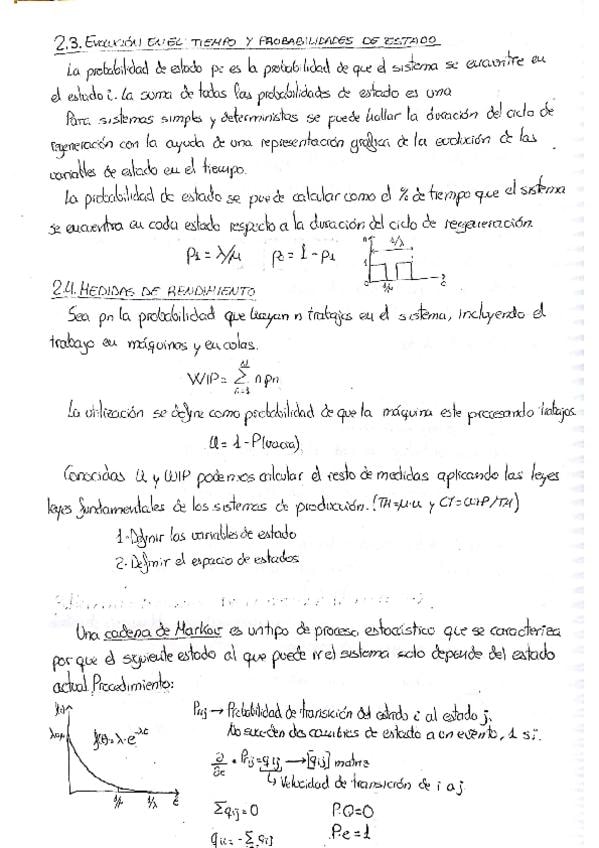 2.3. EVOLUCIÓN EN EL TIEMPO Y PROBABILIDADES DE ESTADO
La probabilidad de estado pi es la probabilidad de que el sistema se encuentre en
el estado i. La suma de todas las probabilidades de estado es una
Para sistemas simples y deterministas se puede hallar la duración del ciclo de
regeneración con la ayuda de una representación gráfica de la evolución de las
variables de estado en el tiempo.
La probabilidad de estado se puede calcular como el % de tiempo que el sistema
se encuentra en cada estado respecto a la duración del ciclo de regeneración
P1 = λ/μ    = 1 - P1
1/λ
1
0
1/μ
2.4. MEDIDAS DE RENDIMIENTO
Sea pn la probabilidad que hayan n trabajos en el sistema, incluyendo el
trabajo en máquinas y en colas.
WIP = Σ n pn
La utilización se define como probabilidad de que la máquina este procesando trabajos.
U = 1 - P(vacía)
Conocidas U y WIP podemos calcular el resto de medidas aplicando las leyes
leyes fundamentales de los sistemas de producción. (TH=μ·u y CT=WIP/TH)
1. Definir las variables de estado
2. Definir el espacio de estados
Una cadena de Markov es un tipo de proceso estocástico que se caracteriza
por que el siguiente estado al que puede ir el sistema solo depende del estado
actual. Procedimiento:
Pij → Probabilidad de transición del estado i al estado j.
No suceden dos cambios de estado a un evento, 1 si.
· Pij = qij → [qij] matriz
↳ Velocidad de transición de i a j
Σqij = 0    P·Q = 0
qii = -Σqij    P·e = 1